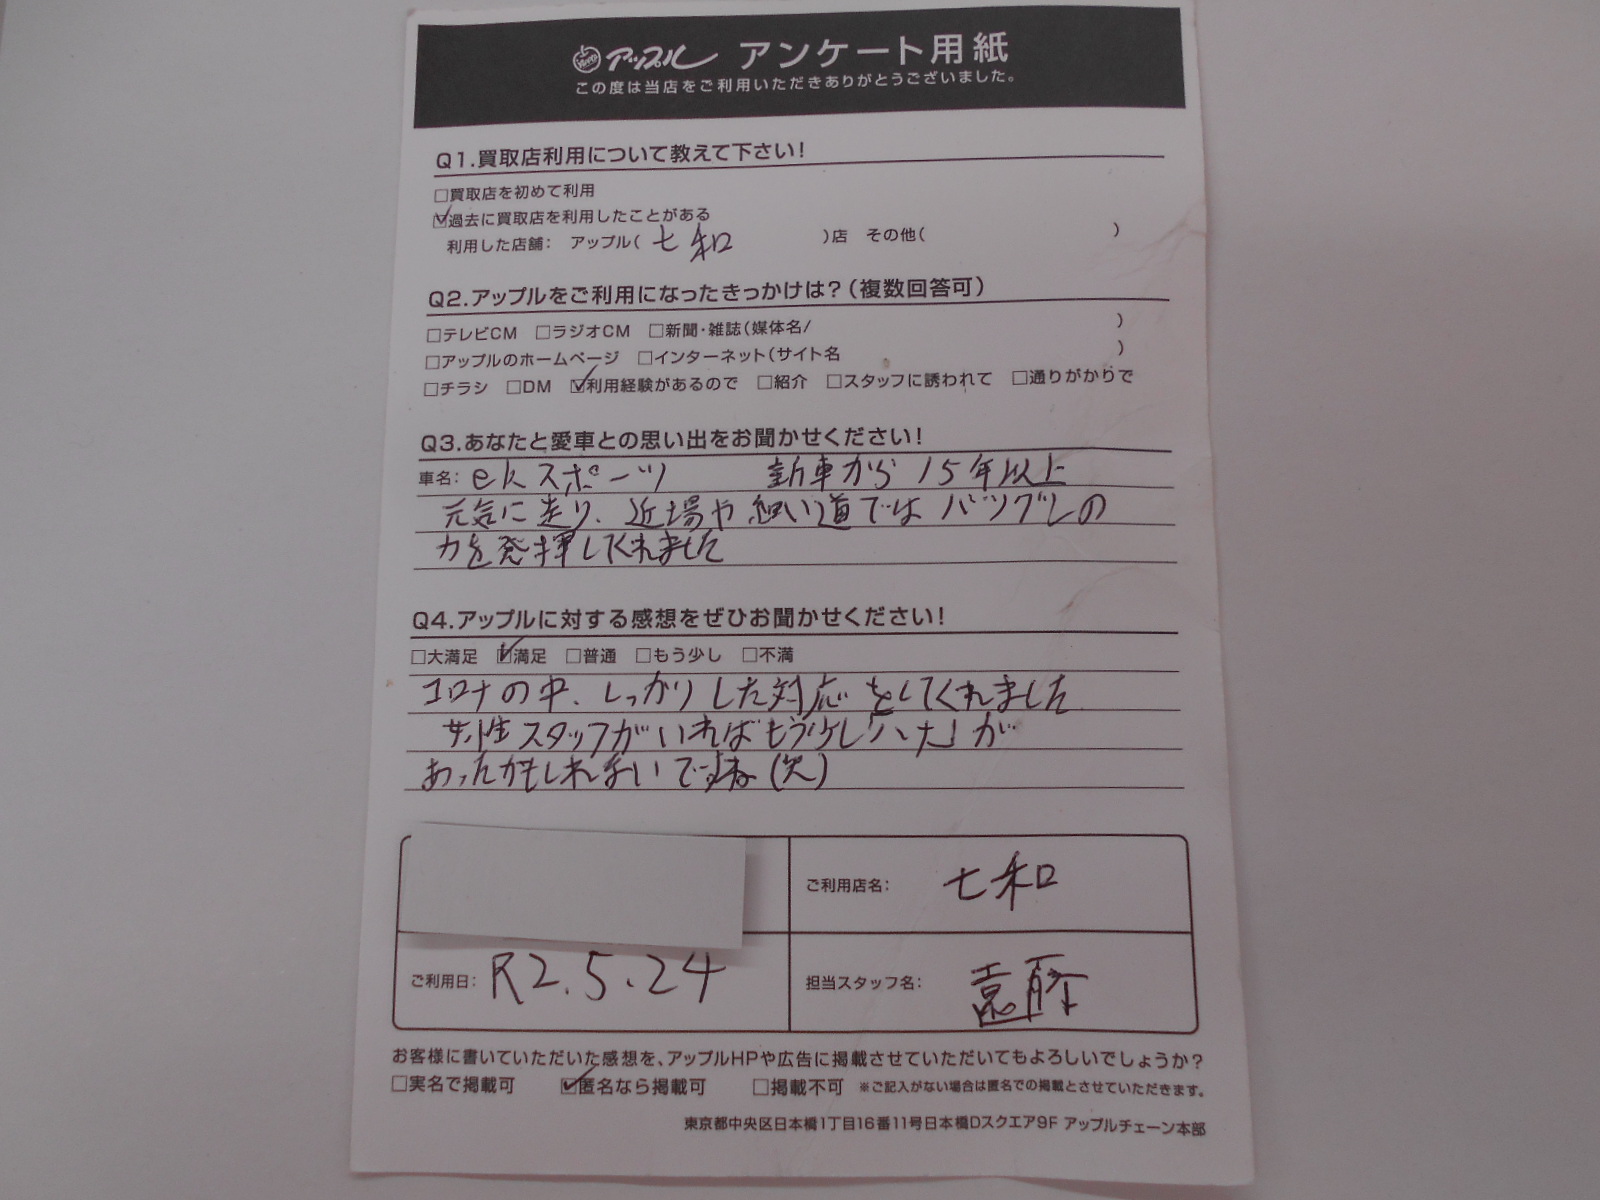 アップル アンケート用紙
この度は当店をご利用いただきありがとうございました。
Q1.買取店利用について教えて下さい!
□買取店を初めて利用
☑過去に買取店を利用したことがある
利用した店舗: アップル( 七和 )店 その他( )
Q2.アップルをご利用になったきっかけは?(複数回答可)
□テレビCM □ラジオCM □新聞・雑誌(媒体名/ )
□アップルのホームページ □インターネット(サイト名 )
□チラシ □DM ☑利用経験があるので □紹介 □スタッフに誘われて □通りがかりで
Q3.あなたと愛車との思い出をお聞かせください!
車名: ekスポーツ 新車から15年以上
元気に走り、近場や細い道ではバツグンの
力を発揮してくれました
Q4.アップルに対する感想をぜひお聞かせください!
□大満足 ☑満足 □普通 □もう少し □不満
コロナの中、しっかりした対応をしてくれました
女性スタッフがいればもう少し「ハナ」が
あったかもしれないですね(笑)
ご利用店名: 七和
ご利用日: R2.5.24
担当スタッフ名: 遠藤
お客様に書いていただいた感想を、アップルHPや広告に掲載させていただいてもよろしいでしょうか?
□実名で掲載可 ☑匿名なら掲載可 □掲載不可 ※ご記入がない場合は匿名での掲載とさせていただきます。
東京都中央区日本橋1丁目16番11号日本橋Dスクエア9F アップルチェーン本部